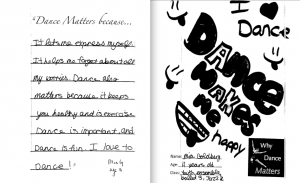 "Dance Matters because...
It lets me express myself.
It helps me forget about all
my worries. Dance also
matters because it keeps
you healthy and is exercise
Dance is important and
Dance is fun. I love to
Dance!
I ♥
Dance
DANCE
MAKES
me
happy
Name: Mia
Age: 11 years old
Class:
ballet 3, Jazz
Why
Dance
Matters